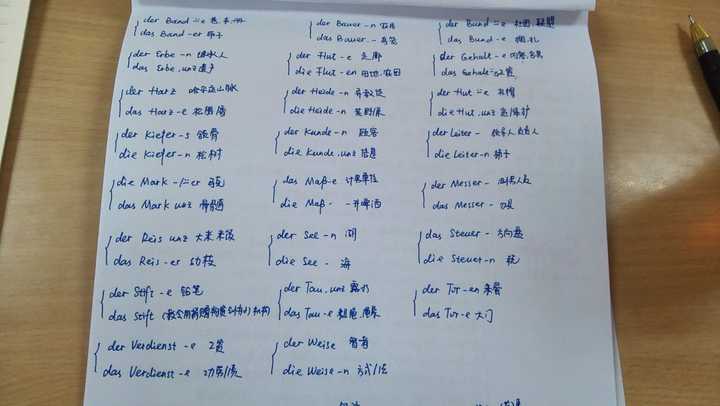 der Band ⸚e 卷,本,册
das Band -er 带子
der Bauer -n 农民
das Bauer - 鸟笼
der Bund ⸚e 社团,联盟
das Bund -e 捆,扎
der Erbe -n 继承人
das Erbe, unz 遗产
der Flut -e 走廊
die Flut -en 田地,农田
der Gehalt -e 内容,含量
das Gehalt ⸚er 工资
der Harz 哈尔茨山脉
das Harz -e 松树脂
der Heide -n 异教徒
die Heide -n 荒野,原
der Hut ⸚e 礼帽
die Hut, unz 监保护
der Kiefer -s 颌骨
die Kiefer -n 松树
der Kunde -n 顾客
die Kunde, unz 信息
der Leiter - 领导人,负责人
die Leiter -n 梯子
die Mark -/⸚er
das Mark unz 骨髓
das Maß -e 计量单位
die Maß - 一升啤酒
der Messer - 测量人员
das Messer - 刀
der Reis unz 大米 米饭
das Reis -er 幼枝
der See -n 湖
die See - 海
das Steuer - 方向盘
die Steuer -n 税
der Stift -e 铅笔
das Stift (教会用捐赠物资创办的)机构
der Tau, unz 露水
das Tau -e 粗缆,绳
der Tor -en 呆瓜
das Tor -e 大门
der Verdienst -e 工资
das Verdienst -e 功劳/绩
der Weise 智者
die Weise -n 方式/法